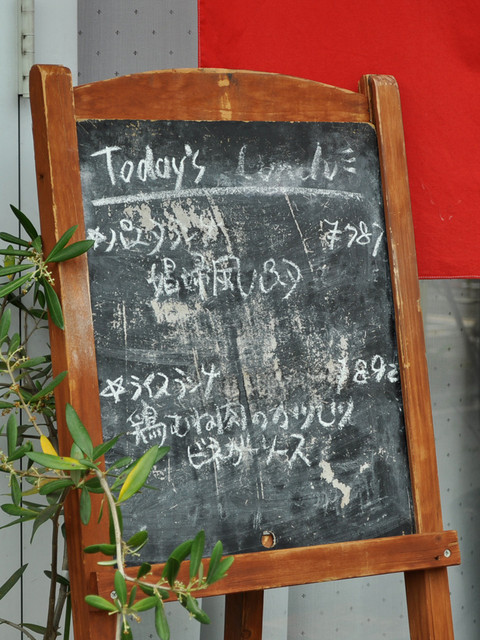 Today's Lunch
☆パスタランチ ¥787
娼婦風
☆ライスランチ ¥892
鶏むね肉のカツレツ
ビネガーソース